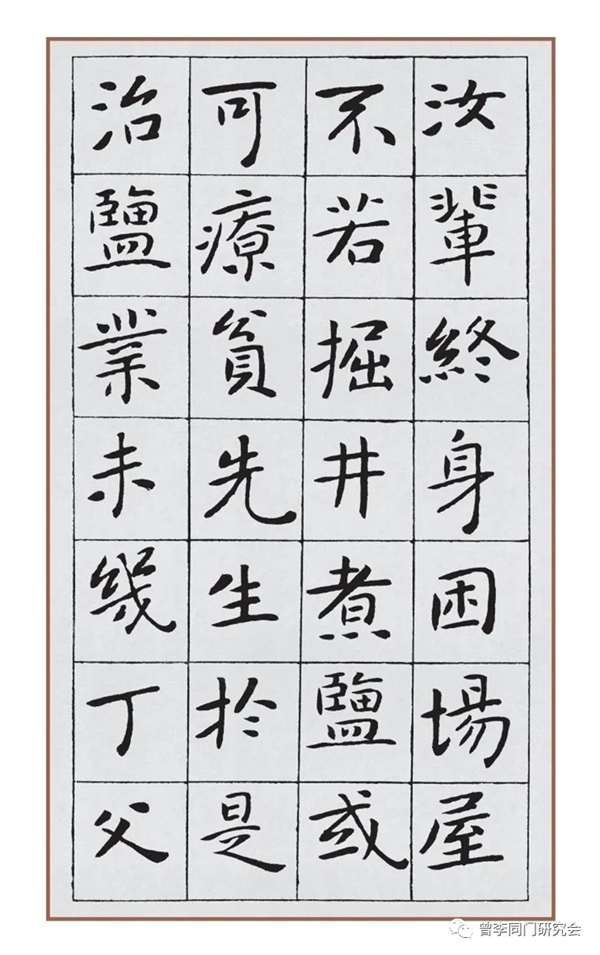 汝輩終身困場屋
不若掘井煮鹽或
可療貧先生於是
治鹽業未幾丁父
曾李同门研究会